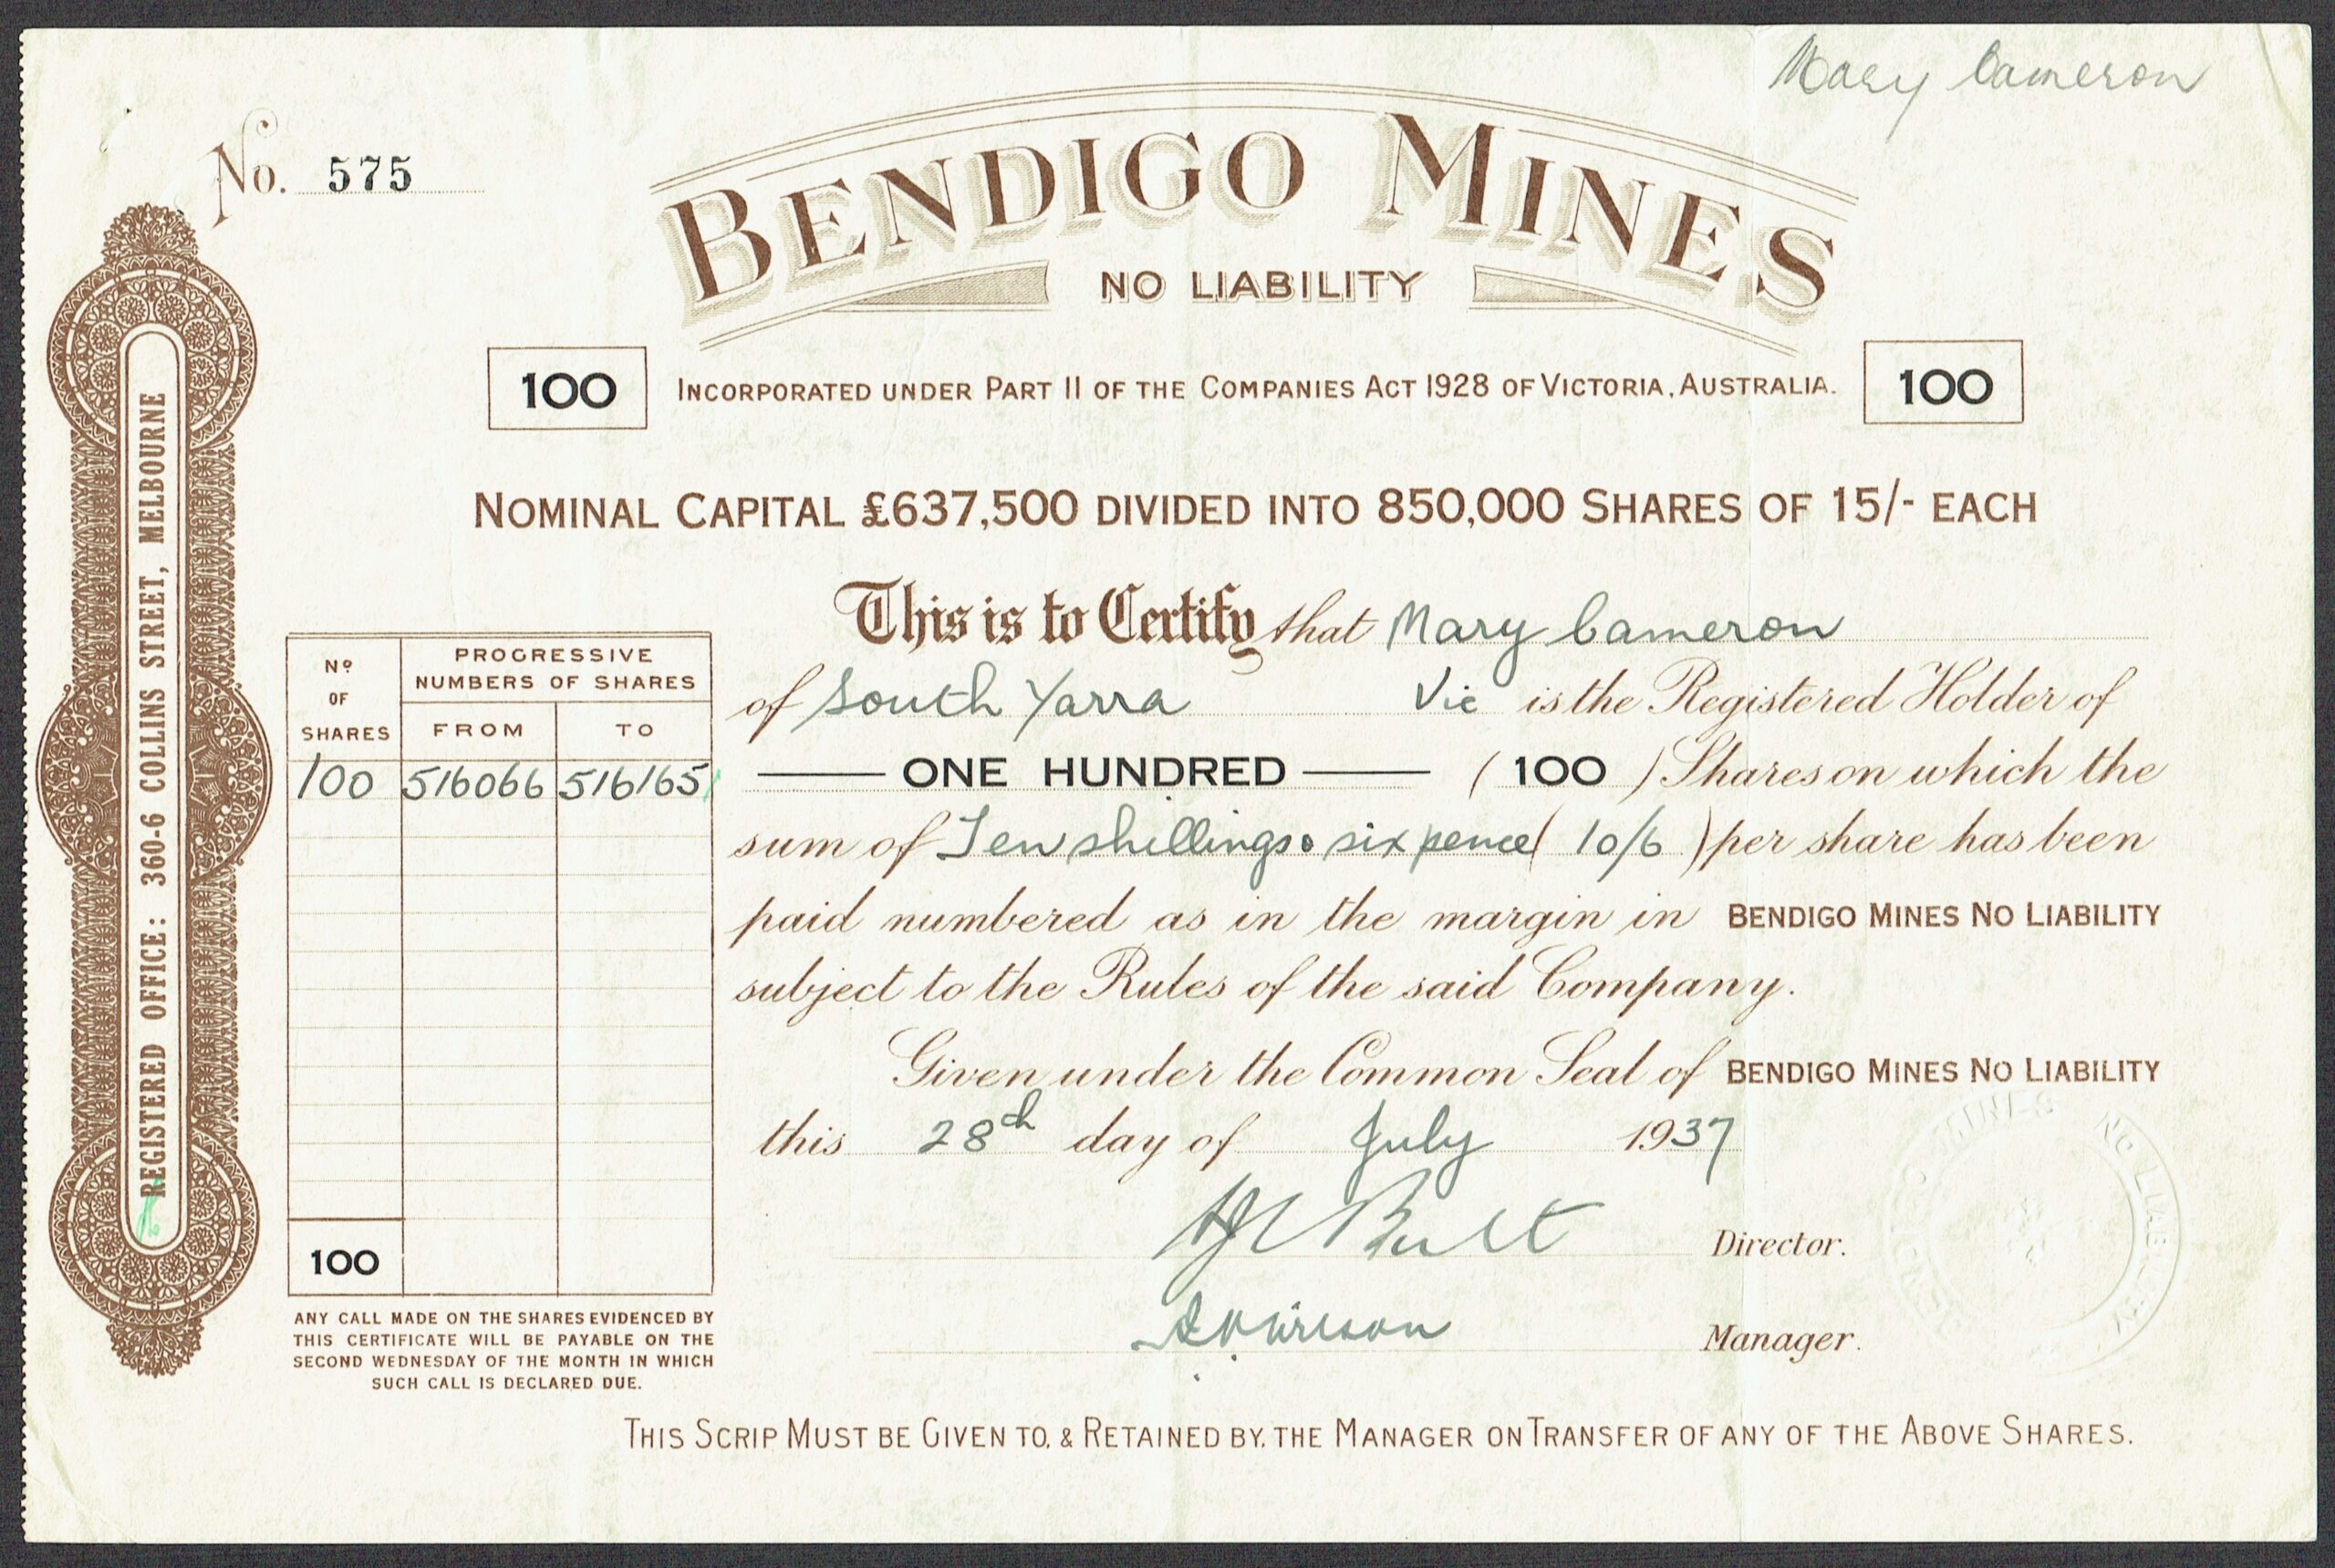 Mary Cameron
No. 575
BENDIGO MINES
NO LIABILITY
100
INCORPORATED UNDER PART II OF THE COMPANIES ACT 1928 OF VICTORIA, AUSTRALIA.
100
NOMINAL CAPITAL £637,500 DIVIDED INTO 850,000 SHARES OF 15/- EACH
REGISTERED OFFICE: 360-6 COLLINS STREET, MELBOURNE
Nº OF SHARES
PROGRESSIVE NUMBERS OF SHARES
FROM TO
100 516066 516165
100
ANY CALL MADE ON THE SHARES EVIDENCED BY
THIS CERTIFICATE WILL BE PAYABLE ON THE
SECOND WEDNESDAY OF THE MONTH IN WHICH
SUCH CALL IS DECLARED DUE.
This is to Certify that Mary Cameron
of South Yarra Vic is the Registered Holder of
ONE HUNDRED (100) Shares on which the
sum of Ten shillings & six pence (10/6) per share has been
paid numbered as in the margin in BENDIGO MINES NO LIABILITY
subject to the Rules of the said Company.
Given under the Common Seal of BENDIGO MINES NO LIABILITY
this 28th day of July 1937
Director.
Manager.
MINES NO LIABILITY
THIS SCRIP MUST BE GIVEN TO, & RETAINED BY, THE MANAGER ON TRANSFER OF ANY OF THE ABOVE SHARES.